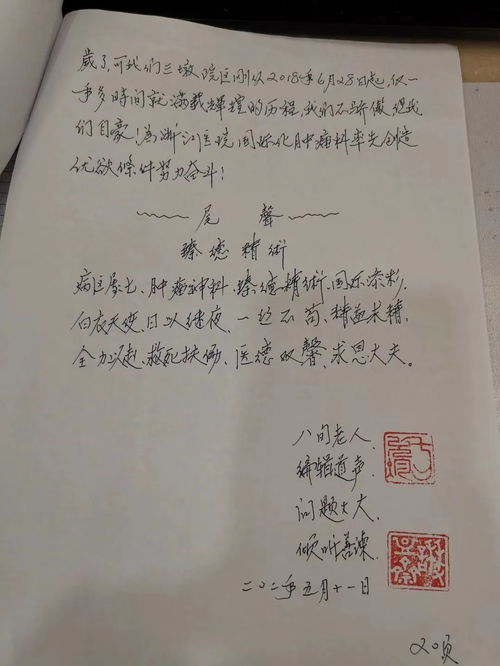 歲了,可我们三墩院区刚从2018年6月28日起,仅一
年多时间就满载輝煌的历程,我们不骄傲但我
们自豪!为浙江医院国际化肿瘤科率先创造
优欲條件努力奋斗!
尾 聲
臻德精術
病区屡七、肿瘤神科、臻德精術、国际添彩,
白衣天使、日以继夜、一丝不苟、精益求精,
全力以赴、救死扶伤、医德双馨、求恩大夫。
八旬老人,
编辑道声,
问题大大,
倾听善谏,
二〇二〇年五月十一日
20页